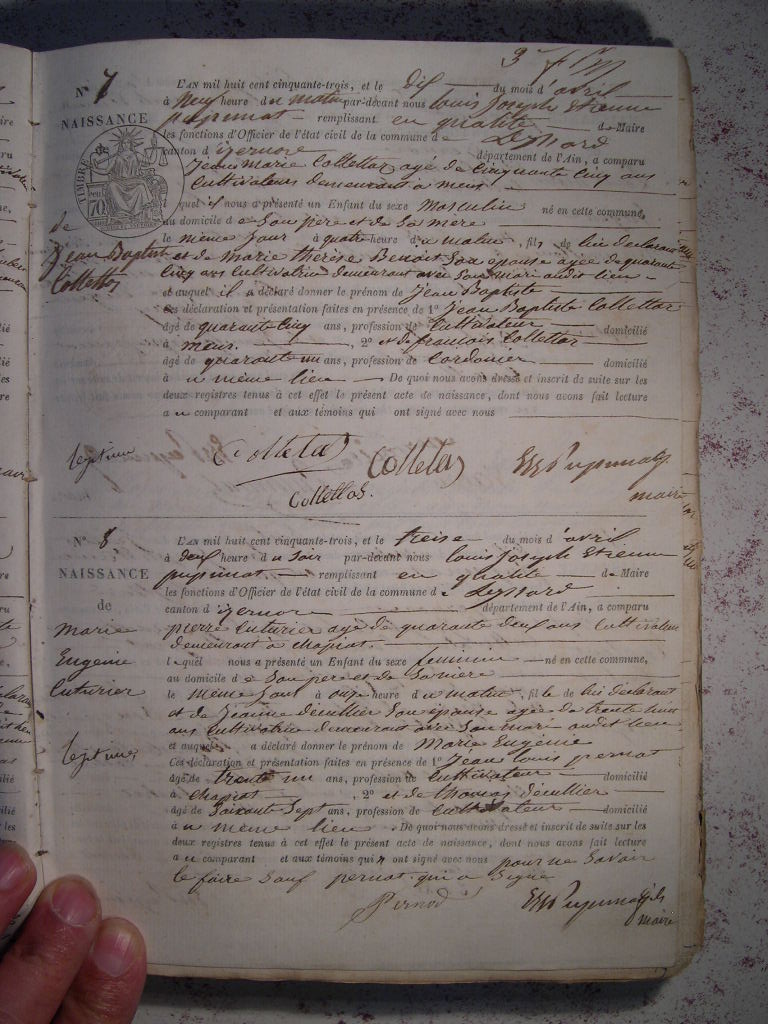 3
N° 7
NAISSANCE
TIMBRE
70
de
Jean Baptiste
Collettaz
légitime
L'AN mil huit cent cinquante-trois, et le dix du mois d'avril
à neuf heure du matin par-devant nous Louis Joseph Etienne
remplissant en qualité de Maire
les fonctions d'Officier de l'état civil de la commune de
canton d'izernore département de l'Ain, a comparu
Jean Marie Collettaz agé de cinquante cinq ans
Cultivateur demeurant à
lequel il nous a présenté un Enfant du sexe masculin né en cette commune,
au domicile de Son pere et de Sa mere
le même jour à quatre heure du matin, fils de lui déclarant
et de Marie thérèse Benoit Son épouse agée de quarante
Cinq ans Cultivatrice demeurant avec Son mari audit lieu
et auquel il a déclaré donner le prénom de Jean Baptiste
Ces déclaration et présentation faites en présence de 1° Jean Baptiste Collettaz
âgé de quarante Cinq ans, profession de Cultivateur domicilié
à 2° et de françois Collettaz
âgé de quarante un ans, profession de Cordonier domicilié
à u même lieu De quoi nous avons dressé et inscrit de suite sur les
deux registres tenus à cet effet le présent acte de naissance, dont nous avons fait lecture
au comparant et aux témoins qui ont signé avec nous
Colletaz Colletaz
Collettaz.
maire
N° 8
NAISSANCE
de
Marie
Eugénie
Cuturier
légitime
L'AN mil huit cent cinquante-trois, et le treise du mois d'avril
à deux heure du Soir par-devant nous Louis Joseph Etienne
remplissant en qualité de Maire
les fonctions d'Officier de l'état civil de la commune de
canton d'izernore département de l'Ain, a comparu
pierre Cuturier agé de quarante deux ans Cultivateur
demeurant à chapiat
lequel nous a présenté un Enfant du sexe feminin né en cette commune,
au domicile de Son pere et de Sa mere
le même jour à onze heure du matin, fille de lui déclarant
et de Jeanne Son épouse agée de trente huit
ans Cultivatrice demeurant avec Son mari audit lieu
et auquel a déclaré donner le prénom de Marie Eugénie
Ces déclaration et présentation faites en présence de 1° Jean Louis pernot
âgé de trente un ans, profession de Cultivateur domicilié
à chapiat, 2° et de thomas
âgé de Soixante Sept ans, profession de Cultivateur domicilié
à u même lieu. De quoi nous avons dressé et inscrit de suite sur les
deux registres tenus à cet effet le présent acte de naissance, dont nous avons fait lecture
au comparant et aux témoins qui n ont signé avec nous pour ne Savoir
le faire Sauf pernot qui a Signé
Pernod
maire